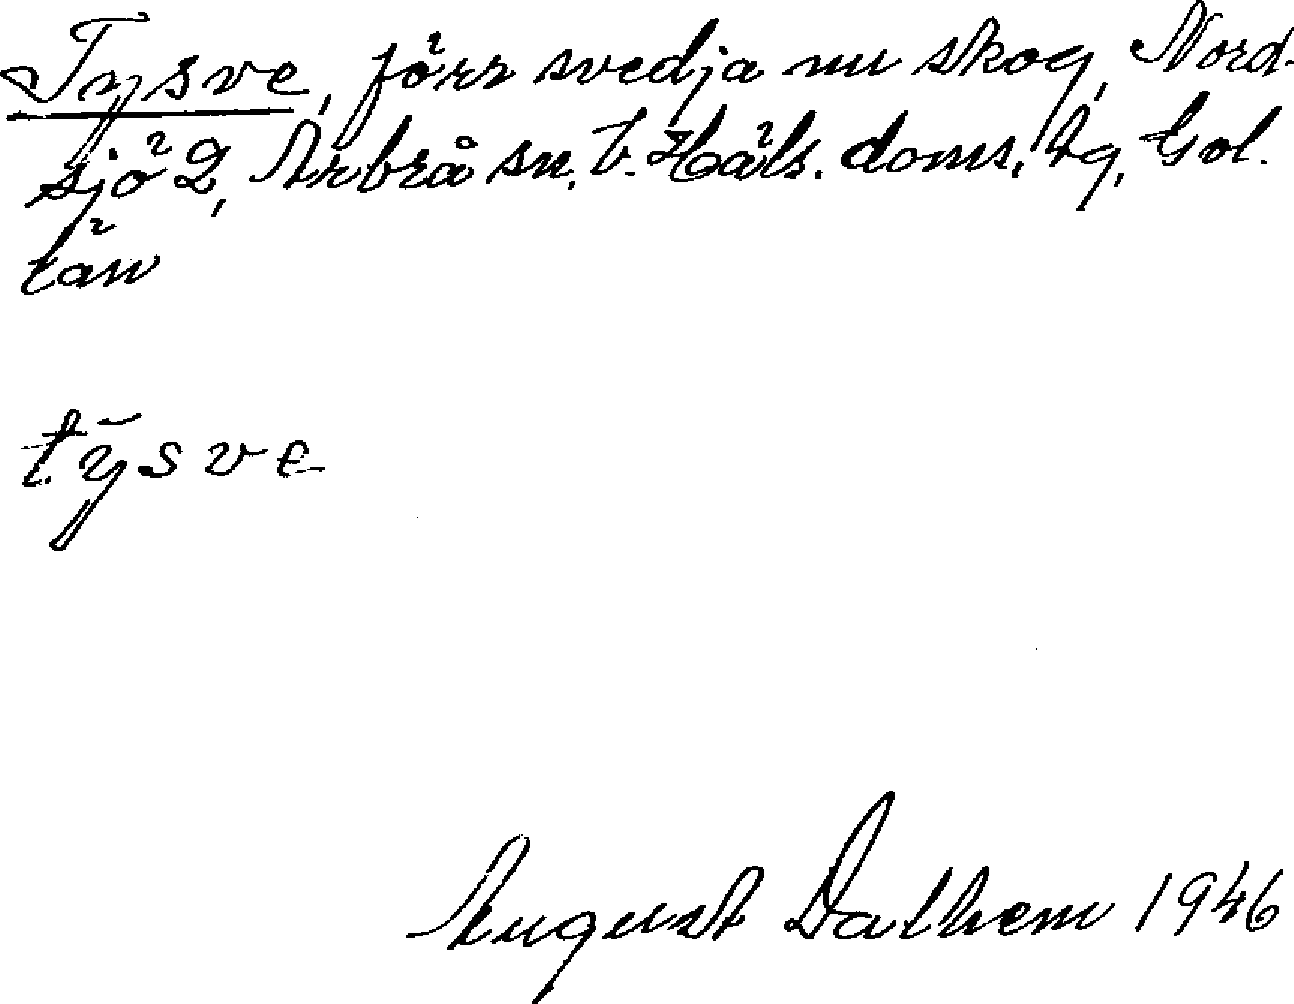 Tysve, förr svedja nu skog, Nord-
sjö 2, Arbrå sn. V. Häls. doms. tg,
län
tȳsve
August Dalhem 1946